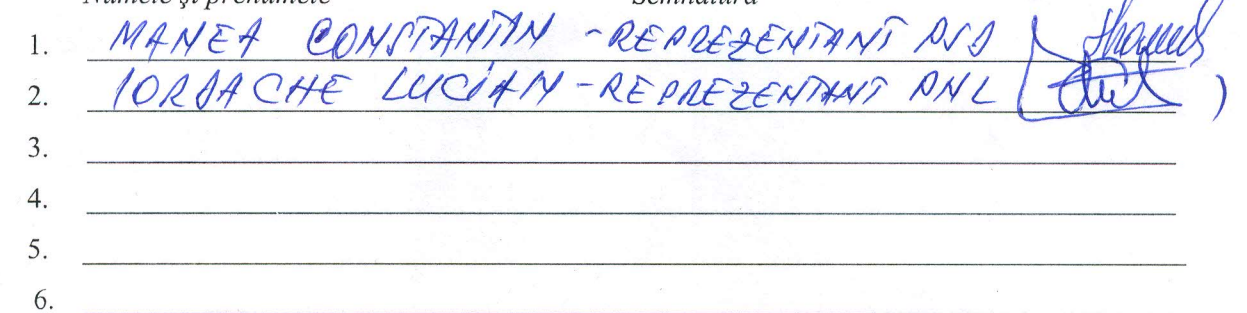 Numele și prenumele Semnătura
1. MANEA CONSTANTIN - REPREZENTANT PSD
2. IORDACHE LUCIAN - REPREZENTANT PNL
3.
4.
5.
6.